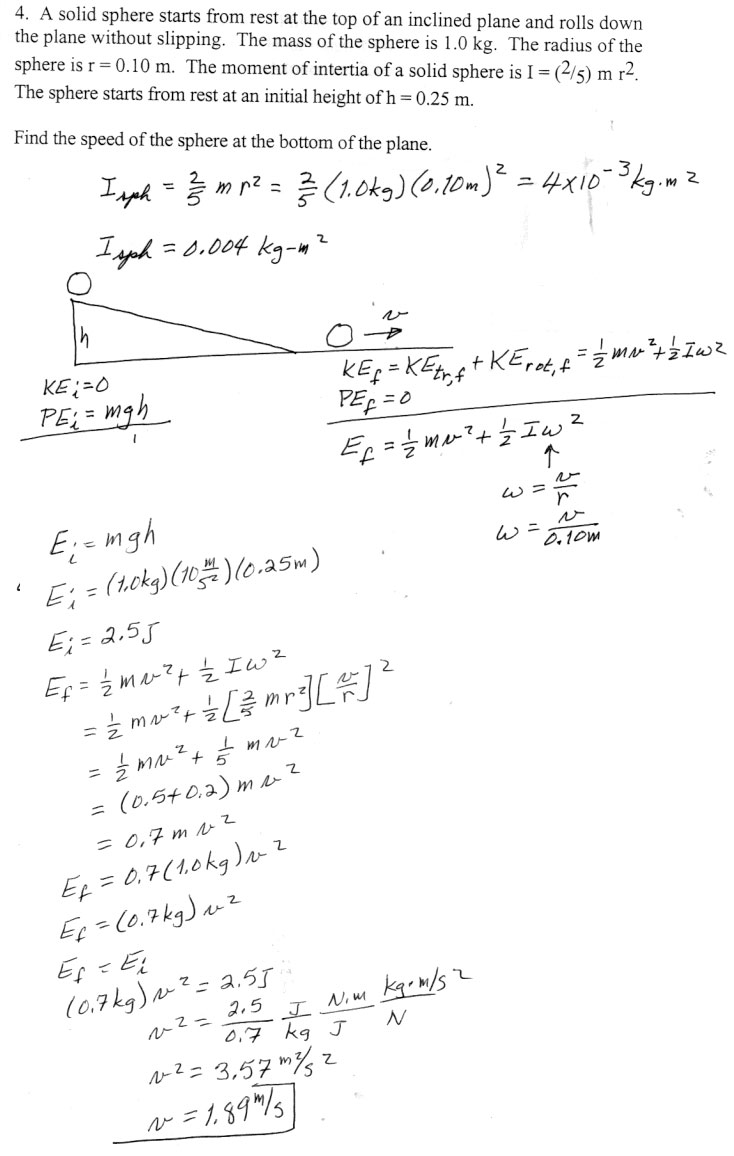 4. A solid sphere starts from rest at the top of an inclined plane and rolls down
the plane without slipping. The mass of the sphere is 1.0 kg. The radius of the
sphere is r = 0.10 m. The moment of intertia of a solid sphere is I = (2/5) m r2.
The sphere starts from rest at an initial height of h = 0.25 m.
Find the speed of the sphere at the bottom of the plane.
I sph = 2/5 m r² = 2/5 (1.0kg)(0.10m)² = 4×10⁻³ kg·m²
I sph = 0.004 kg-m²
h
v
KEi=0
PEi = mgh
KEf = KEtr,f + KErot,f = 1/2 mv² + 1/2 Iω²
PEf = 0
Ef = 1/2 mv² + 1/2 Iω²
↑
ω = v/r
ω = v/0.10m
Ei = mgh
Ei = (1.0kg)(10 m/s²)(0.25m)
Ei = 2.5J
Ef = 1/2 mv² + 1/2 Iω²
= 1/2 mv² + 1/2 [2/5 mr²][v/r]²
= 1/2 mv² + 1/5 mv²
= (0.5+0.2) m v²
= 0.7 m v²
Ef = 0.7(1.0kg)v²
Ef = (0.7kg) v²
Ef = Ei
(0.7kg) v² = 2.5J
v² = 2.5/0.7 J/kg N·m/J kg·m/s²/N
v² = 3.57 m²/s²
v = 1.89 m/s